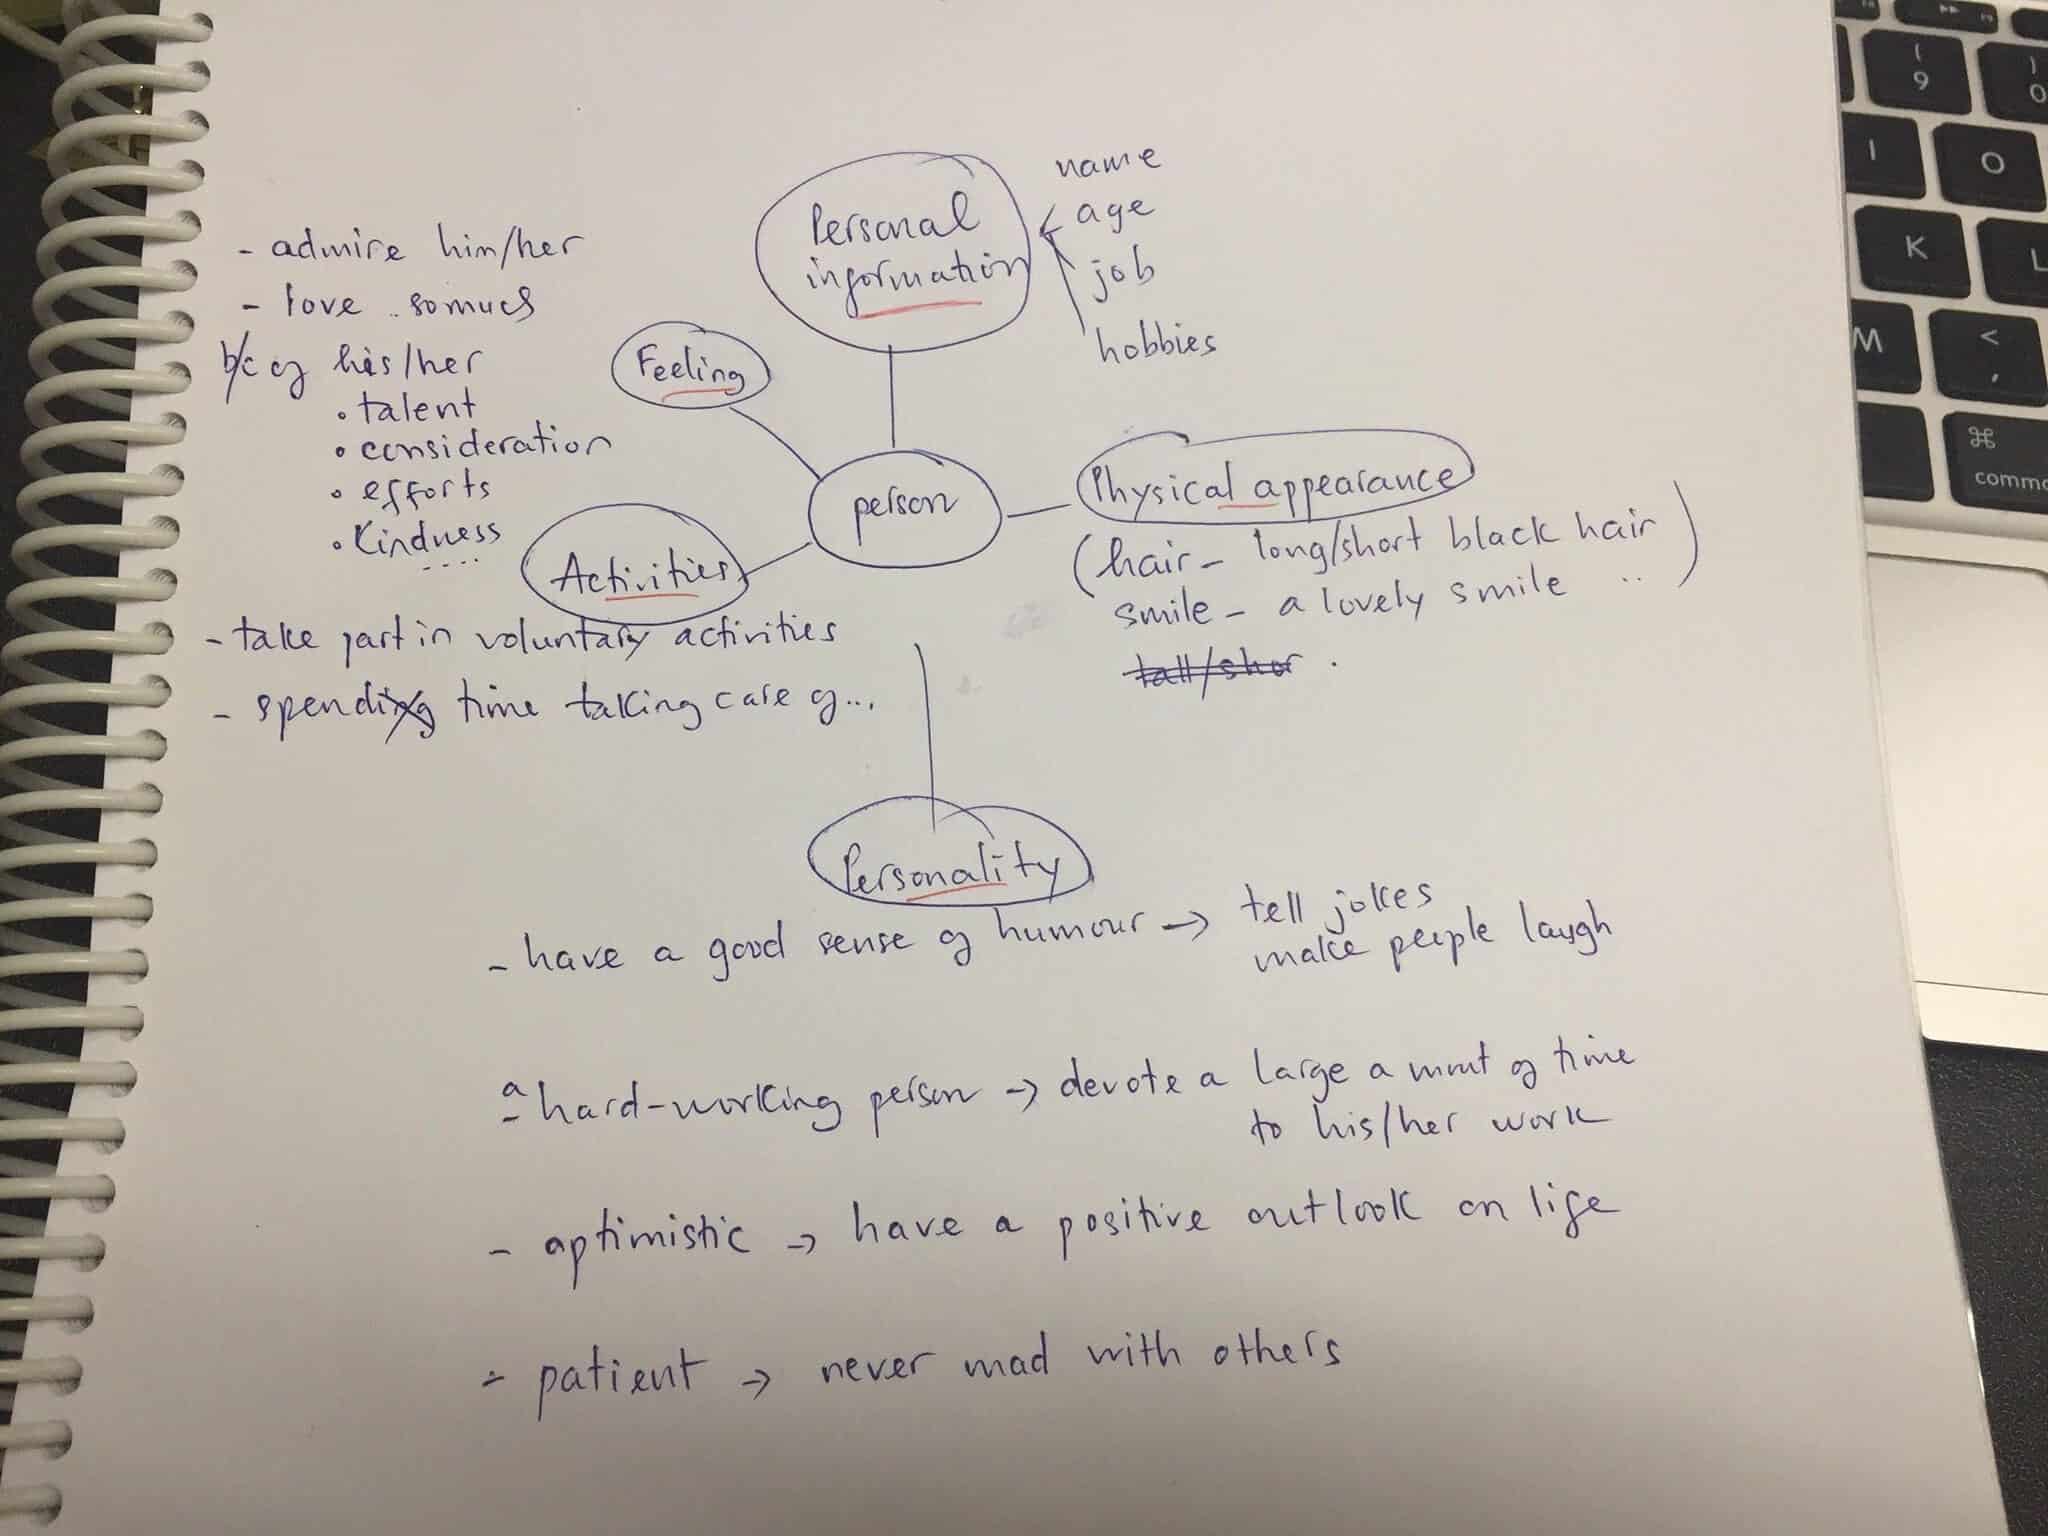 Personal
information
name
age
job
hobbies
- admire him/her
- love .. so much
b/c of his/her
• talent
• consideration
• efforts
• Kindness
....
Feeling
person
Physical appearance
(hair - long/short black hair
smile - a lovely smile ..)
tall/shor .
Activities
- take part in voluntary activities
- spending time taking care of...
Personality
- have a good sense of humour → tell jokes
make people laugh
- a hard-working person → devote a large amount of time
to his/her work
- optimistic → have a positive outlook on life
- patient → never mad with others
( 9
) 0
I
O
K
L
M
< ,
⌘
comm